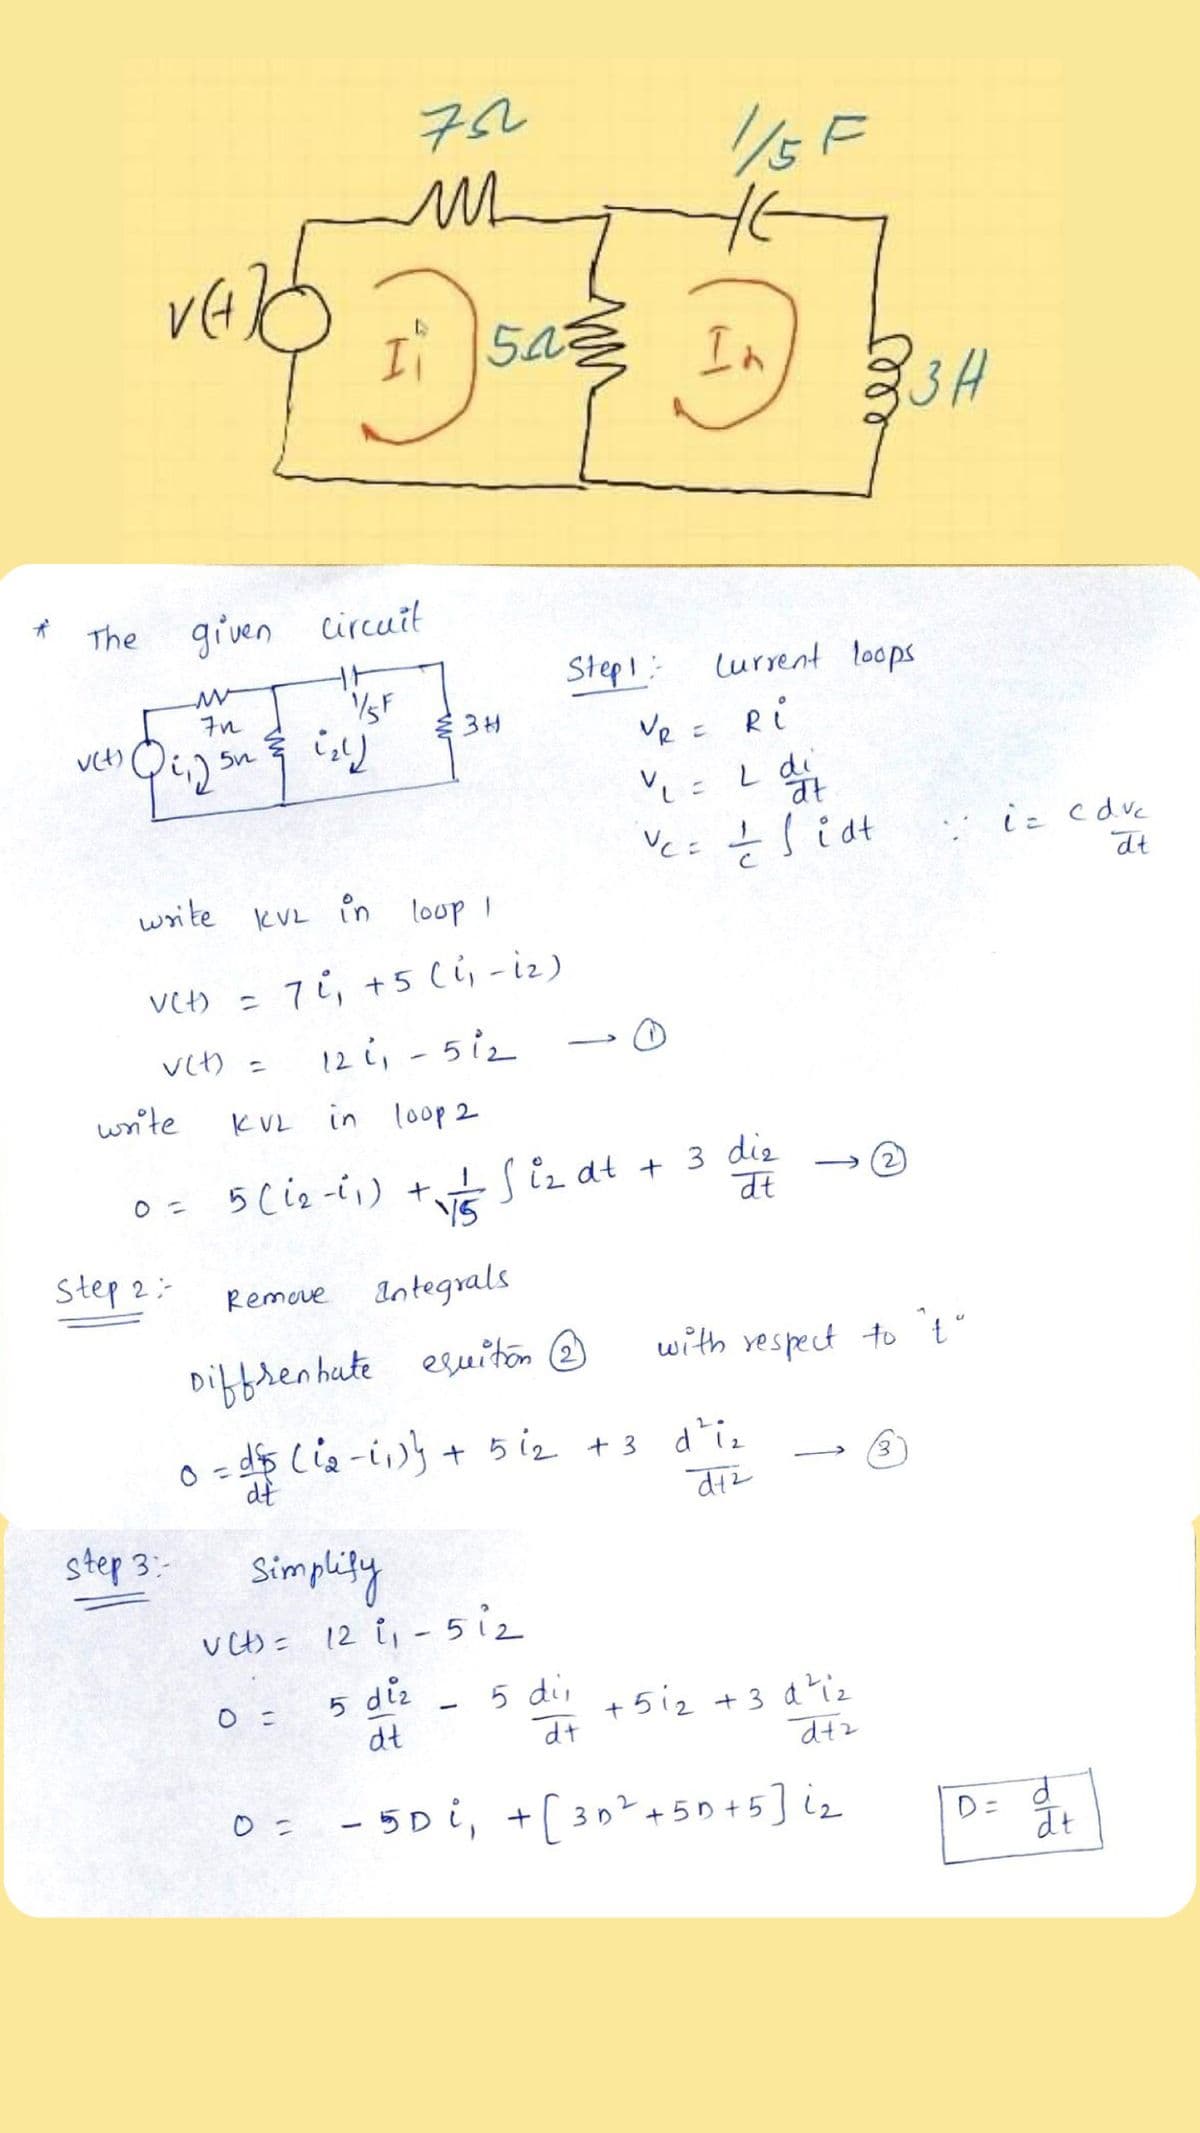 7Ω
1/5 F
v(t)
I₁
5Ω
3H
* The given circuit
1/5F
7Ω
3H
v(t)
i₁
5Ω
i₂
Step 1:- Current loops
V_R = Ri
V_L = L di/dt
V_C = 1/C ∫ i dt ∵ i = c dvc/dt
write KVL in loop 1
v(t) = 7i₁ + 5(i₁ - i₂)
v(t) = 12i₁ - 5i₂ → ①
write KVL in loop 2
0 = 5(i₂ - i₁) + 1/(1/5) ∫ i₂ dt + 3 di₂/dt → ②
Step 2:- Remove Integrals
Diffrentiate equiton ② with respect to "t"
0 = d/dt 5(i₂ - i₁)} + 5i₂ + 3 d²i₂/dt² → ③
Step 3:- Simplify
v(t) = 12 i₁ - 5i₂
0 = 5 di₂/dt - 5 di₁/dt + 5i₂ + 3 d²i₂/dt²
0 = - 5D i₁ + [3D² + 5D + 5] i₂
D = d/dt